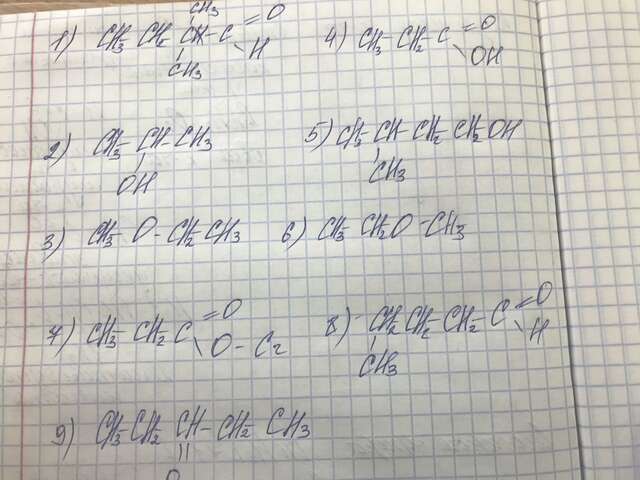 CH3
1) CH3 CH2 CH-C =O
H
CH3
4) CH3- CH2 C =O
OH
2) CH3- CH-CH3
OH
5) CH3-CH-CH2-CH2OH
CH3
3) CH3- O-CH2CH3
6) CH3-CH2O-CH3
7) CH3-CH2C =O
O-C2
8) CH2CH2-CH2-C =O
H
CH3
9) CH3-CH2 CH-CH2 CH3
||
O